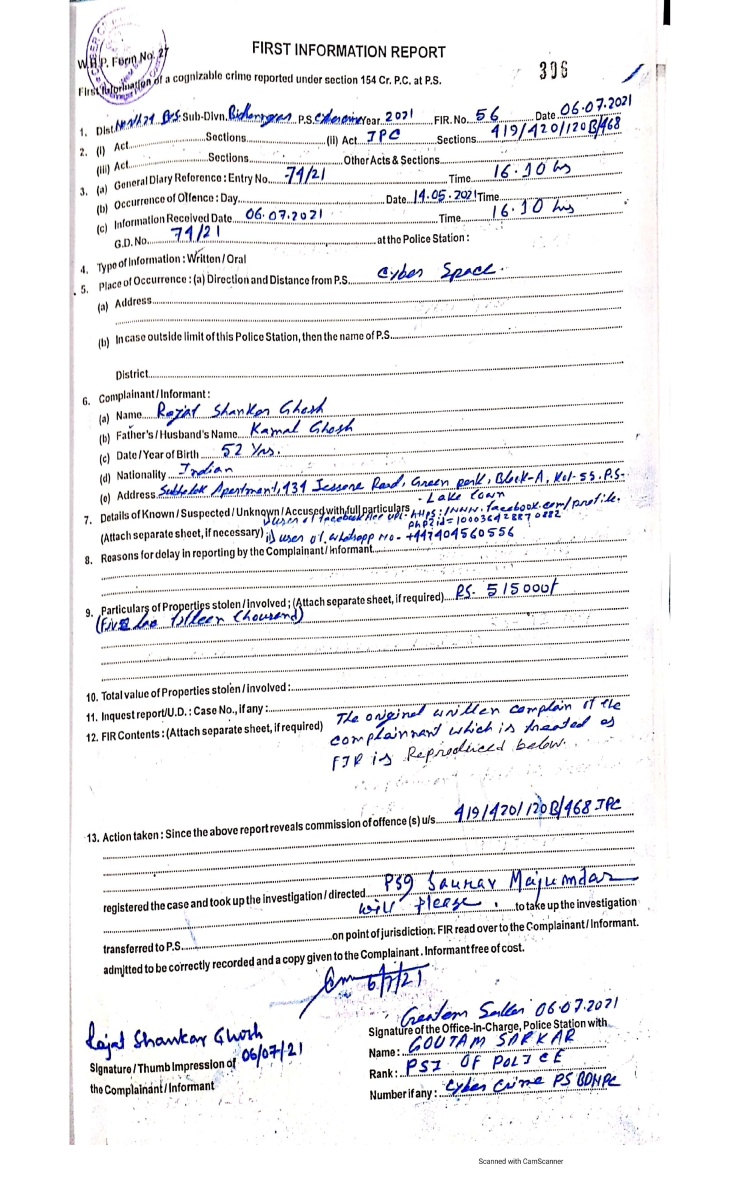 W.B.P. Form No. 27
FIRST INFORMATION REPORT
396
First Information of a cognizable crime reported under section 154 Cr. P.C. at P.S.
1. Dist. North 24 Sub-Divn. Bidhannagar P.S. Cybercrime Year 2021 FIR. No. 56 Date 06.07.2021
2. (i) Act Sections (ii) Act IPC Sections 419/420/120B/468
(iii) Act Sections Other Acts & Sections
3. (a) General Diary Reference : Entry No. 74/21 Time 16.10 hrs
(b) Occurrence of Offence : Day Date 14.05.2021 Time
(c) Information Received Date 06.07.2021 Time 16.10 hrs
G.D. No. 74/21 at the Police Station :
4. Type of Information : Written / Oral
5. Place of Occurrence : (a) Direction and Distance from P.S. Cyber Space.
(a) Address
(b) In case outside limit of this Police Station, then the name of P.S.
District
6. Complainant / Informant :
(a) Name Rajat Shankar Ghosh
(b) Father's / Husband's Name Kamal Ghosh
(c) Date / Year of Birth 52 Yrs.
(d) Nationality Indian
(e) Address Apartment, 131 Jessore Road, Green park, Block-A, Kol-55. P.S.
- Lake Town
7. Details of Known / Suspected / Unknown / Accused with full particulars i) user of facebook Acc URL- https://www.facebook.com/profile.
php?id=100036428870882
(Attach separate sheet, if necessary) ii) user of whatsapp no - +447404560556
8. Reasons for delay in reporting by the Complainant / Informant
9. Particulars of Properties stolen / Involved ; (Attach separate sheet, if required) RS. 515000/
(Five lac fifteen thousand)
10. Total value of Properties stolen / involved :
11. Inquest report / U.D. : Case No., if any :
12. FIR Contents : (Attach separate sheet, if required) The original written complain of the
complainnant which is treated as
FIR is Reproduced below.
13. Action taken : Since the above report reveals commission of offence (s) u/s 419/420/120B/468 IPC
registered the case and took up the investigation / directed PSI Saurav Majumdar
will please. to take up the investigation
transferred to P.S. on point of jurisdiction. FIR read over to the Complainant / Informant.
admitted to be correctly recorded and a copy given to the Complainant. Informant free of cost.
6/7/21
Goutam Sarkar 06.07.2021
Rajat Shankar Ghosh
06/07/21
Signature of the Office-in-Charge, Police Station with
Signature / Thumb Impression of
the Complainant / Informant
Name : GOUTAM SARKAR
Rank : PSI OF POLICE
Number if any : Cyber Crime PS BDNPC
Scanned with CamScanner